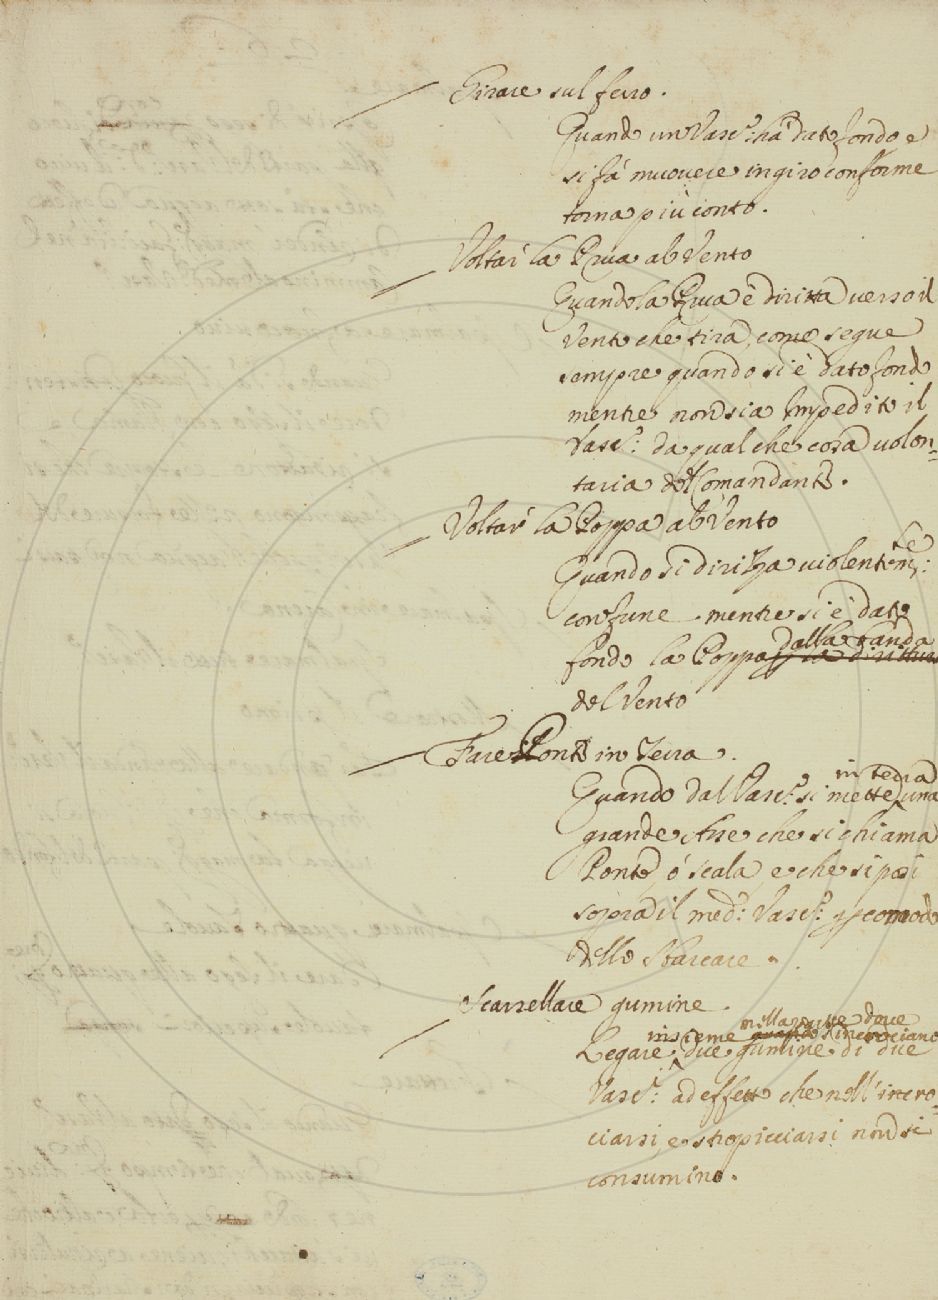 Girare sul ferro.
Quando un Vasc.º ha dato fondo e
si fà muovere in giro conforme
torna più conto.
Voltar la Prua al Vento
Quando la Prua è diritta verso il
Vento che tira, come segue
sempre quando si è dato fondo
mentre non sia Impedito il
Vasc.º da qual che cosa volon-
taria del Comandante.
Voltar la Poppa al Vento
Quando si dirizza violentem.te
con fune mentre si è dato
fondo la Poppa dalla banda
del Vento
Fare Ponte in Terra.
Quando dal Vasc.º si mette in terra una
grande Asse che si chiama
Ponte, ó scala, e che si posi
sopra il med.º Vasc.º p comodo
dello Sbarcare.
Scarsellare gumine.
nella parte dove
insieme s'incrociano
Legare due gumine di due
Vasc.i ad effetto che nell'incro-
ciarsi, e stropicciarsi non si
consumino.